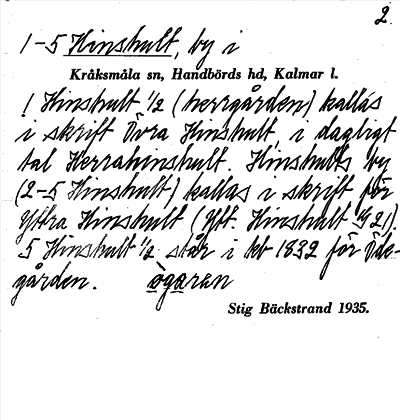 2.
1-5 Hinshult, by i
Kråksmåla sn, Handbörds hd, Kalmar l.
1 Hinshult 1/2 (herrgården) kallas
i skrift Övra Hinshult, i dagligt
tal Herrahinshult. Hinshults by
(2-5 Hinshult) kallas i skrift för
Yttra Hinshult (Ytt. Hinshult G 21).
5 Hinshult 1/2 står i kb 1832 för Öde-
gården. ògaran
Stig Bäckstrand 1935.